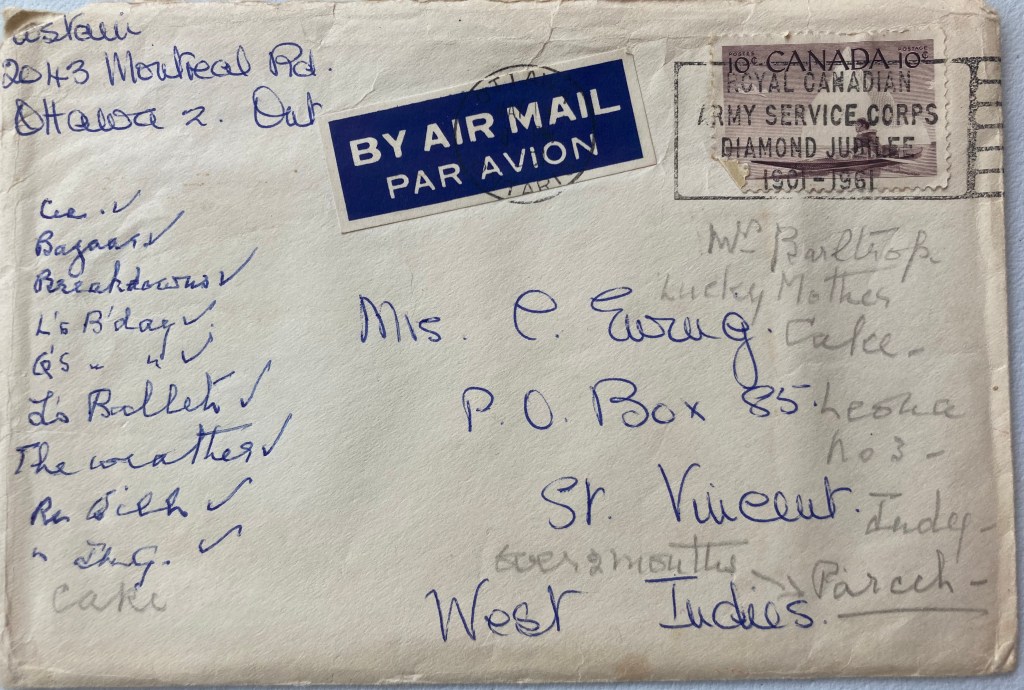 2043 Montreal Rd.
Ottawa 2. Ont
BY AIR MAIL
PAR AVION
POSTES POSTAGE
10¢ CANADA 10¢
ROYAL CANADIAN
ARMY SERVICE CORPS
DIAMOND JUBILEE
1901-1961
Bazaar ✓
Breakdowns ✓
L's B'day ✓
G's " " ✓
L's Ballet ✓
The weather ✓
Re ✓
" ✓
Cake
Mrs. C. Ewing.
P.O. Box 85.
St. Vincent.
West Indies.
Mrs Barltrop
Lucky Mother
Cake -
Leona
No 3 -
Judy -
over 2 months
Parcel -